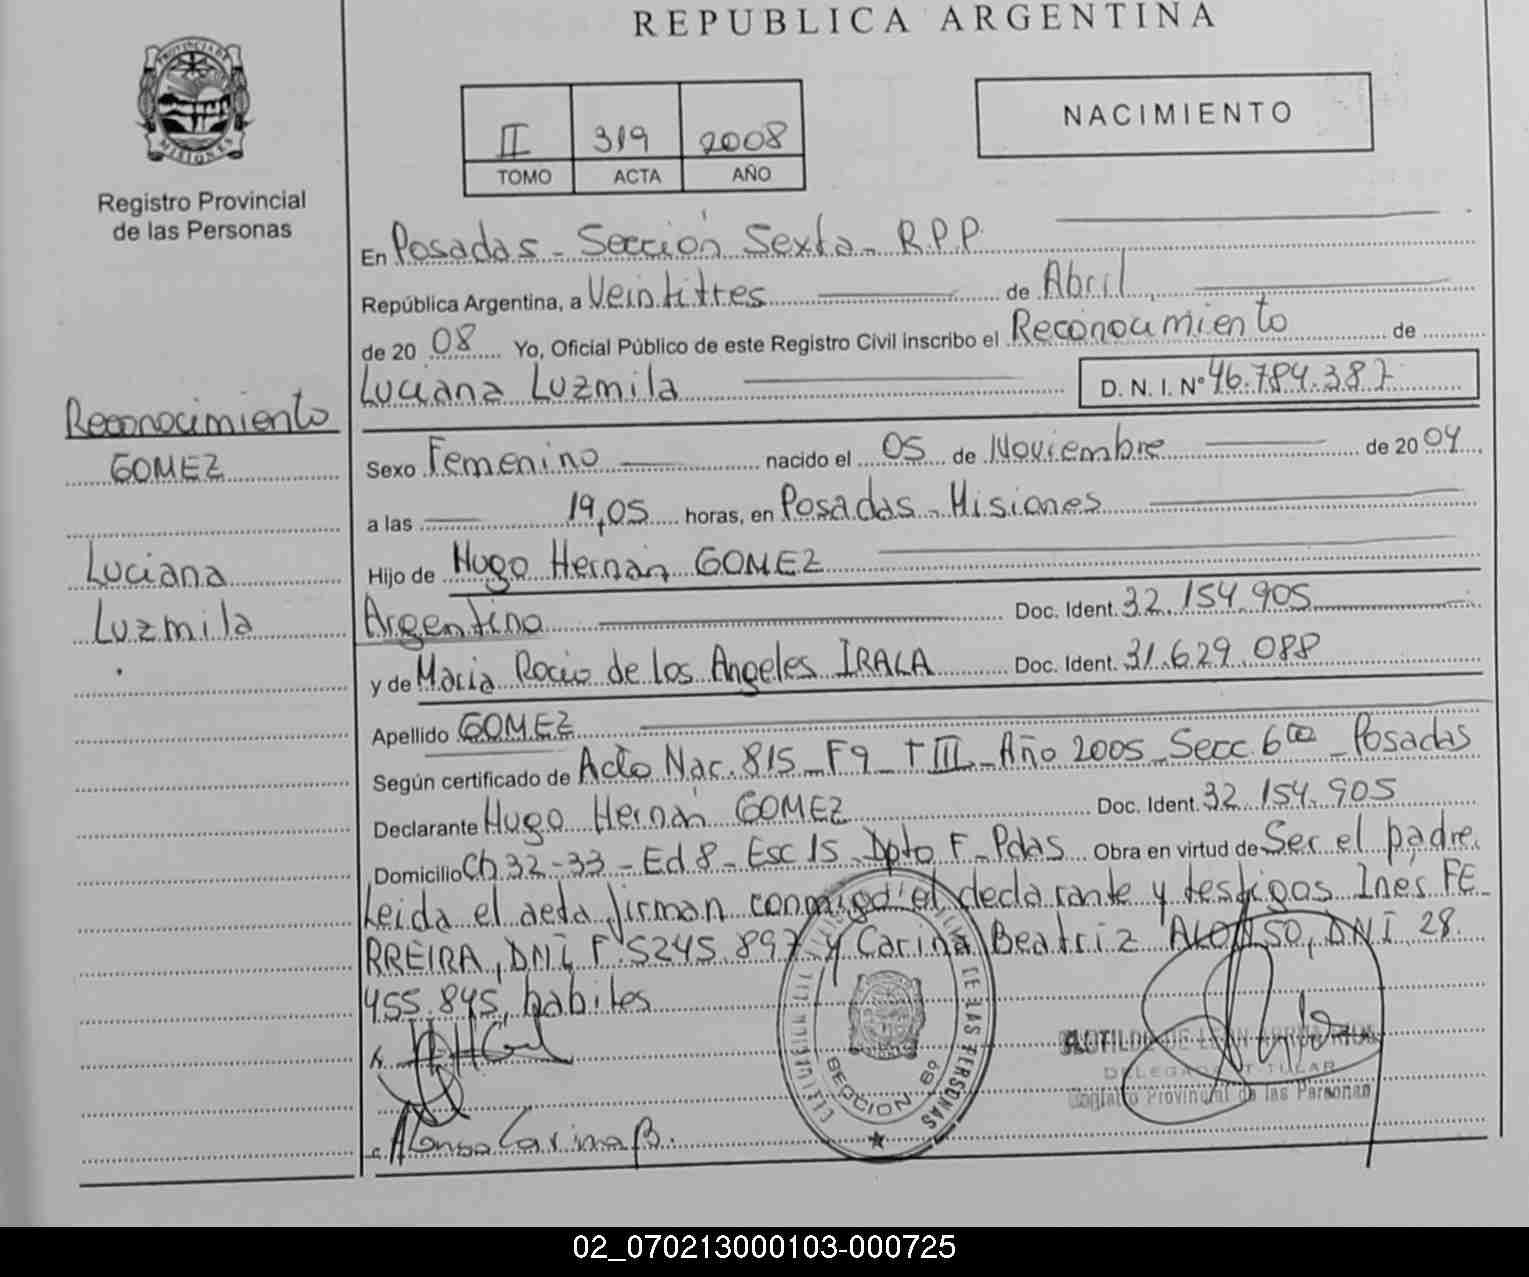 REPUBLICA ARGENTINA
PROVINCIA DE
MISIONES
Registro Provincial
de las Personas
II 319 2008
TOMO ACTA AÑO
NACIMIENTO
En Posadas - Sección Sexta - R.P.P.
República Argentina, a Veintitres de Abril
de 20 08 Yo, Oficial Público de este Registro Civil inscribo el Reconocimiento de
Luciana Luzmila D. N. I. Nº 46.784.387
Reconocimiento
GOMEZ
Luciana
Luzmila
Sexo Femenino nacido el 05 de Noviembre de 20 04
a las 19,05 horas, en Posadas - Misiones
Hijo de Hugo Hernán GOMEZ
Argentino Doc. Ident. 32.154.905
y de Maria Rocio de los Angeles IRALA Doc. Ident. 31.629.088
Apellido GOMEZ
Según certificado de Acta Nac. 815 - F9 - T III - Año 2005 - Secc. 6ta - Posadas
Declarante Hugo Hernán GOMEZ Doc. Ident. 32.154.905
Domicilio Ch 32-33 - Ed 8 - Esc 15 - Dpto F - Pdas Obra en virtud de Ser el padre.
Leida el acta firman conmigo el declarante y testigos Ines FE-
RREIRA, DNI F 5245.897 y Carina Beatriz ALONSO, DNI 28.
455.845, habiles
SECCION 6º
DE LAS PERSONAS
DELEGADA TITULAR
Registro Provincial de las Personas
Alonso Carina B.
02_070213000103-000725